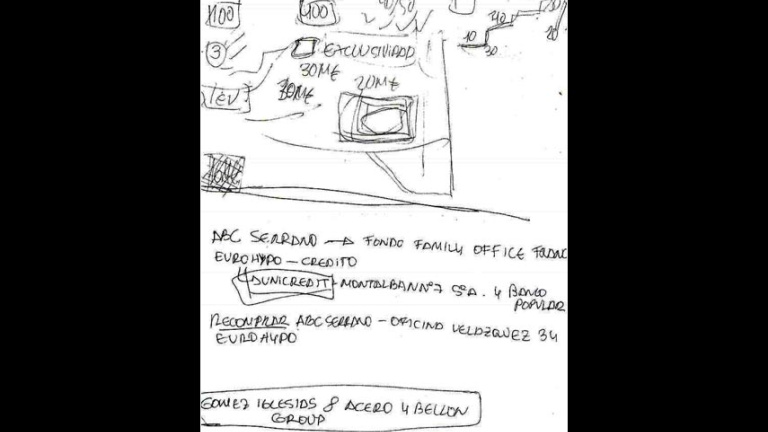 100 400
40 10 20 30
3
EXCLUSIVIDAD
30M€
30M€ 20M€
ABC SERRANO → FONDO FAMILY OFFICE FRANC
EUROHYPO - CREDITO
UNICREDIT - MONTALBAN Nº7 5ºA. Y BANCO
POPULAR
RECOMPRAR ABC SERRANO - OFICINA VELAZQUEZ 34
EUROHYPO
GOMEZ IGLESIAS & ACERO Y BELLON
GROUP